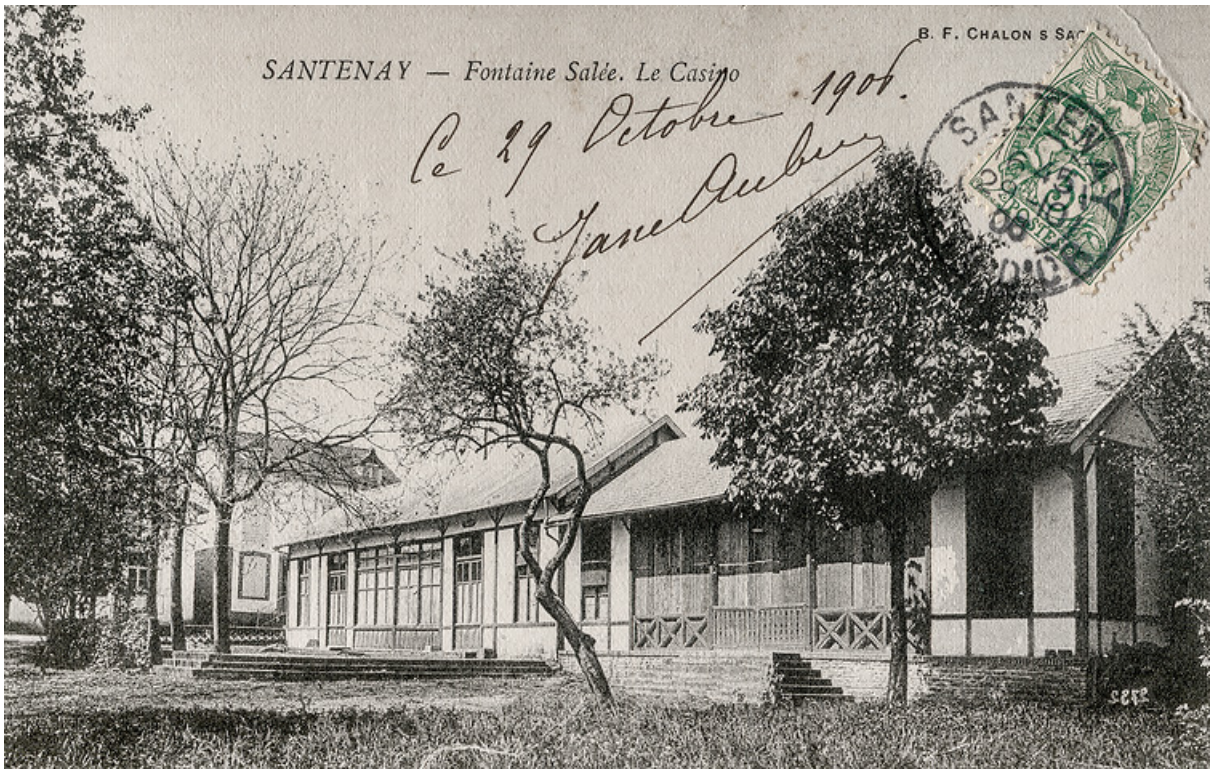 B. F. CHALON S SAO
SANTENAY — Fontaine Salée. Le Casino
Ce 29 Octobre 1906.
Jane Aubry
SANTENAY
29
06
2732